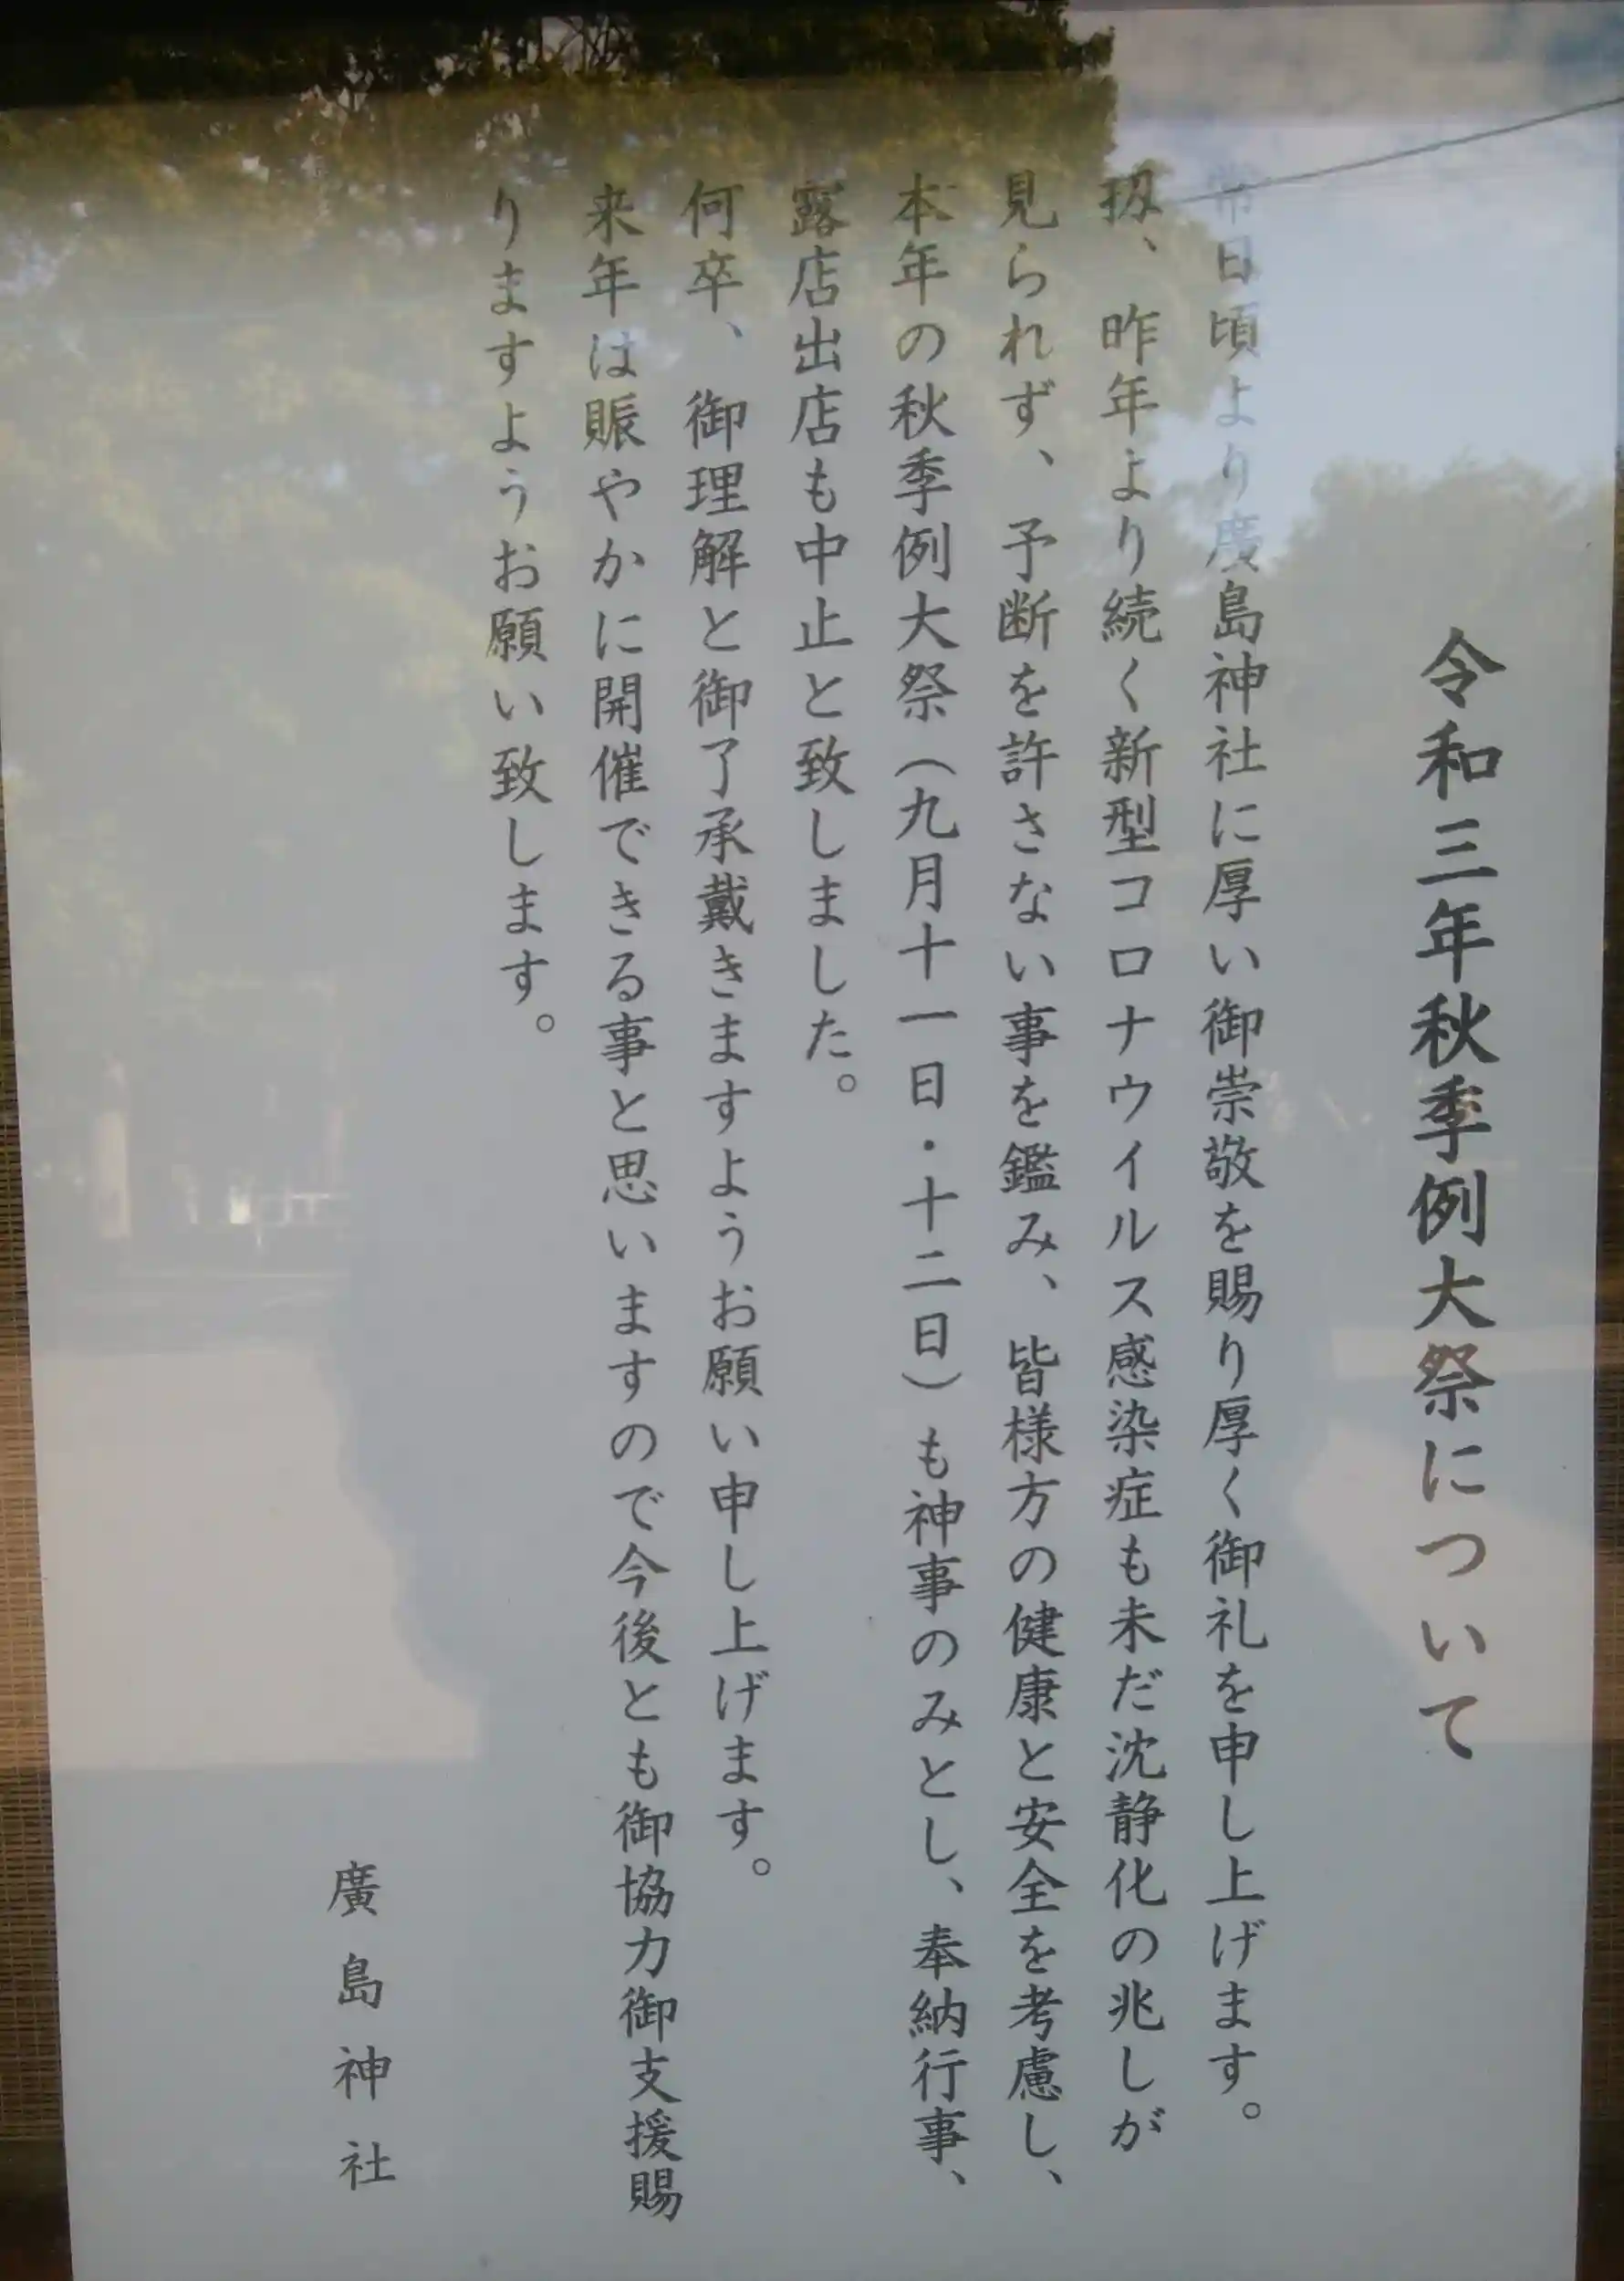 令和三年秋季例大祭について
常日頃より廣島神社に厚い御崇敬を賜り厚く御礼を申し上げます。
扨、昨年より続く新型コロナウイルス感染症も未だ沈静化の兆しが
見られず、予断を許さない事を鑑み、皆様方の健康と安全を考慮し、
本年の秋季例大祭（九月十一日・十二日）も神事のみとし、奉納行事、
露店出店も中止と致しました。
何卒、御理解と御了承戴きますようお願い申し上げます。
来年は賑やかに開催できる事と思いますので今後とも御協力御支援賜
りますようお願い致します。
廣島神社